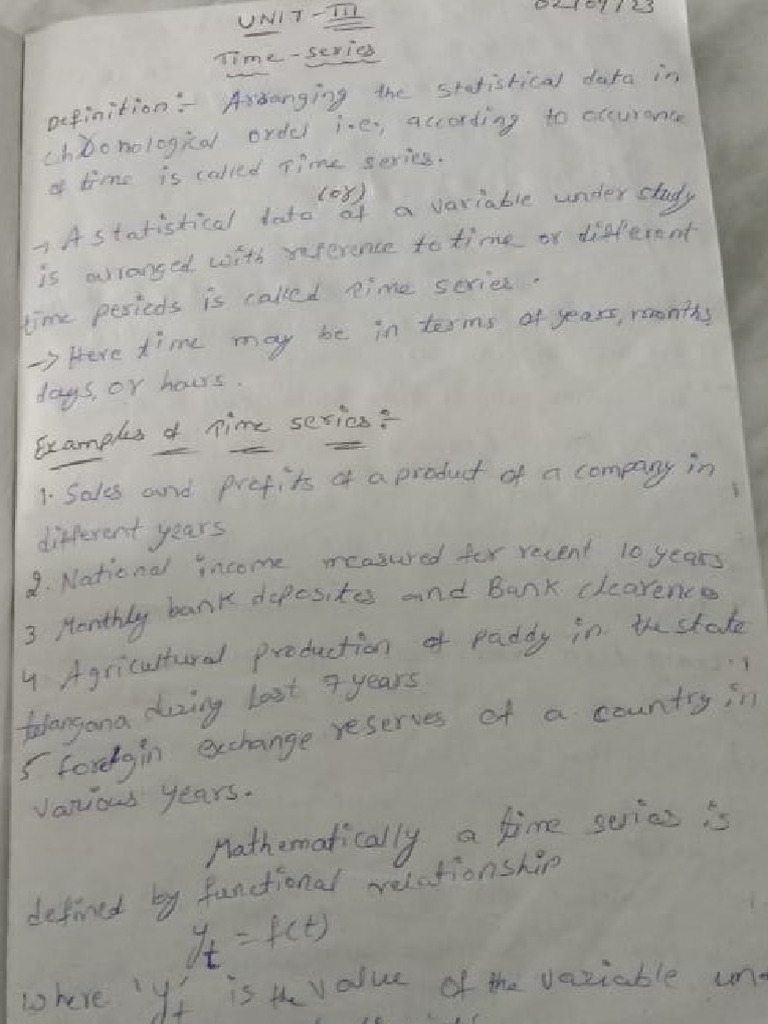 02/09/23
UNIT-III
Time-series
Definition:- Arranging the statistical data in
chronological order i.e., according to occurance
of time is called Time series.
(or)
→ A statistical data of a variable under study
is arranged with reference to time or different
time periods is called Time series.
→ Here time may be in terms of years, months
days, or hours.
Examples of Time series:-
1. Sales and profits of a product of a company in
different years
2. National income measured for recent 10 years
3 Monthly bank deposites and Bank clearence
4 Agricultural production of paddy in the state
telangana during last 7 years
5 foreign exchange reserves of a country in
various years.
Mathematically a time series is
defined by functional relationship
yt = f(t)
where 'yt' is the value of the variable un